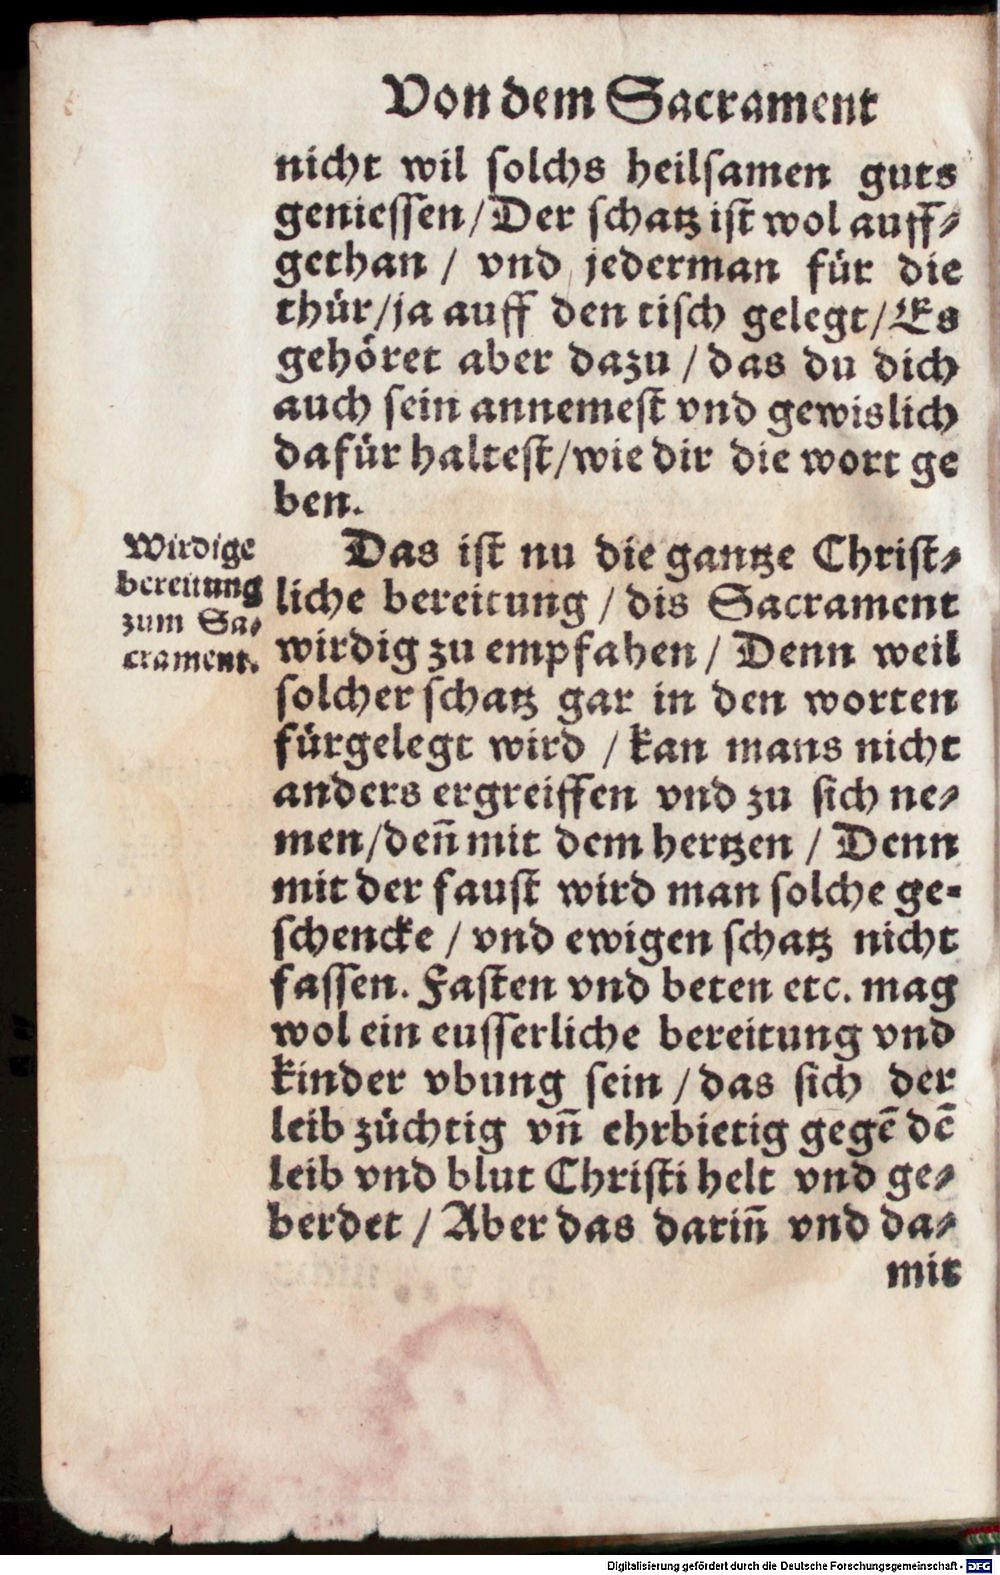 Von dem Sacrament
nicht wil solchs heilsamen guts
geniessen / Der schatz ist wol auff⸗
gethan / vnd jederman für die
thür / ja auff den tisch gelegt / Es
gehöret aber dazu / das du dich
auch sein annemest vnd gewislich
dafür haltest / wie dir die wort ge
ben.
Das ist nu die gantze Christ⸗
liche bereitung / dis Sacrament
wirdig zu empfahen / Denn weil
solcher schatz gar in den worten
fürgelegt wird / kan mans nicht
anders ergreiffen vnd zu sich ne⸗
men / deñ mit dem hertzen / Denn
mit der faust wird man solche ge⸗
schencke / vnd ewigen schatz nicht
fassen. Fasten vnd beten etc. mag
wol ein eusserliche bereitung vnd
kinder vbung sein / das sich der
leib züchtig vñ ehrbietig gegē dē
leib vnd blut Christi helt vnd ge⸗
berdet / Aber das dariñ vnd da⸗
mit
Wirdige
bereitung
zum Sa⸗
crament.
Digitalisierung gefördert durch die Deutsche Forschungsgemeinschaft - DFG